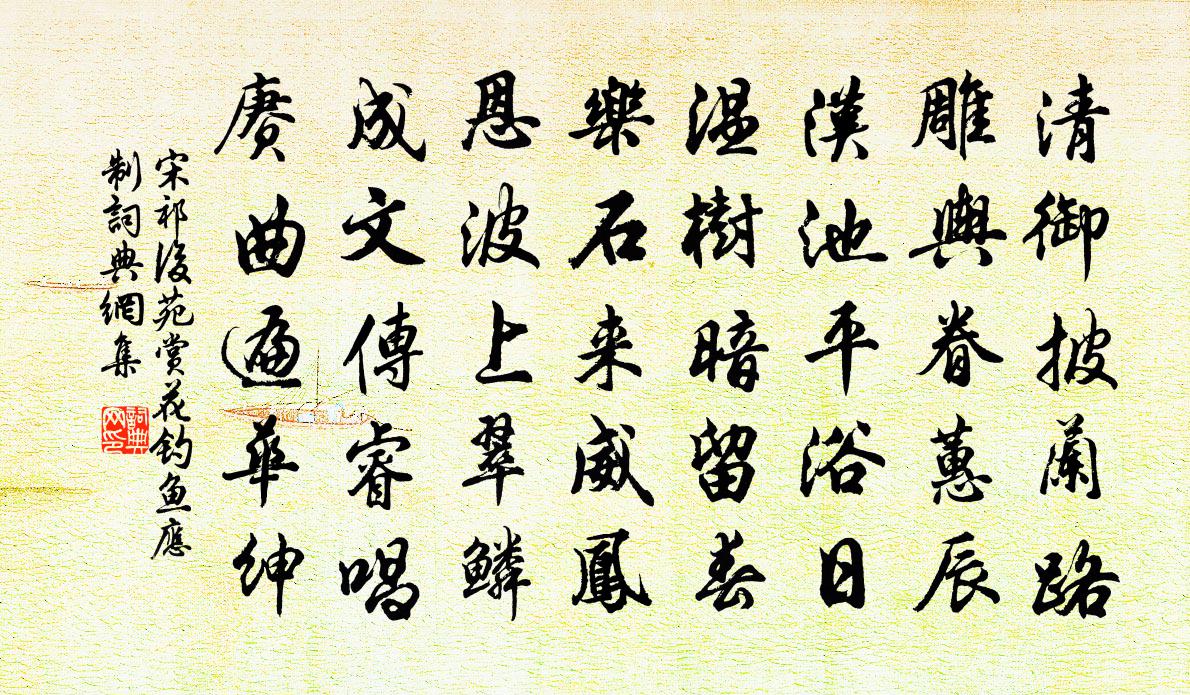 清御披蘭路
雕輿眷蕙辰
漢池平浴日
温樹暗留春
樂石来威鳳
恩波上翠鱗
成文傳睿唱
赓曲遍華紳
宋祁後苑赏花釣鱼應
制詞典網集
詞典
网印